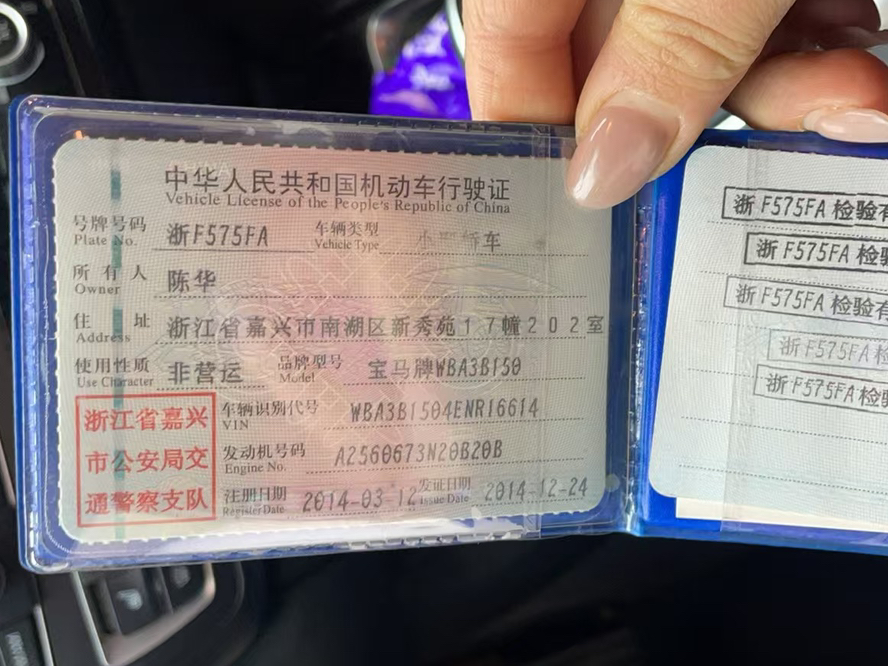 中华人民共和国机动车行驶证
Vehicle License of the People's Republic of China
号牌号码 浙F575FA 车辆类型 小型轿车
Plate No. Vehicle Type
所有人 陈华
Owner
住址 浙江省嘉兴市南湖区新秀苑17幢202室
Address
使用性质 非营运 品牌型号 宝马牌WBA3B150
Use Character Model
浙江省嘉兴
市公安局交
通警察支队
车辆识别代号 WBA3B1504ENR16614
VIN
发动机号码 A2560673N20B20B
Engine No.
注册日期 2014-03-12 发证日期 2014-12-24
Register Date Issue Date
浙F575FA 检验有
浙F575FA 检验
浙F575FA 检验有
浙F575FA 检验
浙F575FA 检验